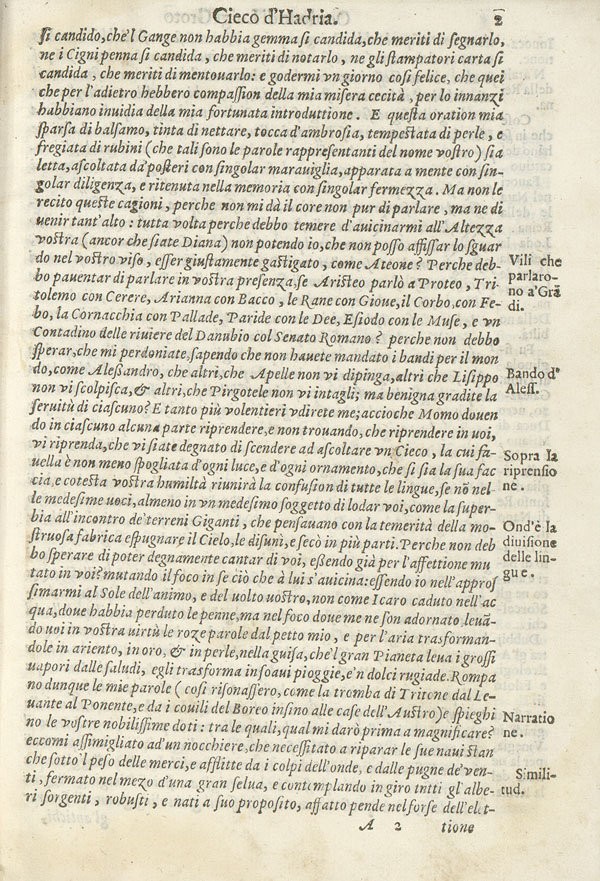 Cieco d'Hadria. 2
si candido, che'l Gange non habbia gemma si candida, che meriti di segnarlo,
ne i Cigni penna si candida, che meriti di notarlo, ne gli stampatori carta si
candida, che meriti di mentouarlo: e godermi vn giorno cosi felice, che quei
che per l'adietro hebbero compassion della mia misera cecità, per lo innanzi
habbiano inuidia della mia fortunata introduttione. E questa oration mia
sparsa di balsamo, tinta di nettare, tocca d'ambrosia, tempestata di perle, e
fregiata di rubini (che tali sono le parole rappresentanti del nome vostro) sia
letta, ascoltata da' posteri con singolar marauiglia, apparata a mente con sin-
golar diligenza, e ritenuta nella memoria con singolar fermezza. Ma non le
recito queste cagioni, perche non mi dà il core non pur di parlare, ma ne di
uenir tant'alto: tutta volta perche debbo temere d'auicinarmi all'Altezza
vostra (ancor che siate Diana) non potendo io, che non posso affissar lo sguar
do nel vostro viso, esser giustamente gastigato, come Ateone? Perche deb-
bo pauentar di parlare in vostra presenza, se Aristeo parlò a Proteo, Tri-
tolemo con Cerere, Arianna con Bacco, le Rane con Gioue, il Corbo, con Fe-
bo, la Cornacchia con Pallade, Paride con le Dee, Esiodo con le Muse, e vn
Contadino delle riuiere del Danubio col Senato Romano? perche non debbo
sperar, che mi perdoniate, sapendo che non hauete mandato i bandi per il mon
do, come Alessandro, che altri, che Apelle non vi dipinga, altri che Lisippo
non vi scolpisca, & altri, che Pirgotele non vi intagli; ma benigna gradite la
seruitù di ciascuno? E tanto più volentieri vdirete me; accioche Momo douen
do in ciascuno alcuna parte riprendere, e non trouando, che riprendere in uoi,
vi riprenda, che vi siate degnato di scendere ad ascoltare vn Cieco, la cui fa-
uella è non meno spogliata d'ogni luce, e d'ogni ornamento, che si sia la sua fac
cia, e cotesta vostra humiltà riunirà la confusion di tutte le lingue, se nõ nel-
le medesime uoci, almeno in vn medesimo soggetto di lodar voi, come la super-
bia all'incontro de' terreni Giganti, che pensauano con la temerità della mo-
struosa fabrica espugnare il Cielo, le disunì, e secò in più parti. Perche non deb
bo sperare di poter degnamente cantar di voi, essendo già per l'affettione mu
tato in voi? mutando il foco in se ciò che à lui s'auicina: essendo io nell'appros
simarmi al Sole dell'animo, e del uolto uostro, non come Icaro caduto nell'ac
qua, doue habbia perduto le penne, ma nel foco doue me ne son adornato, leuã-
do uoi in vostra uirtù le roze parole dal petto mio, e per l'aria trasforman-
dole in ariento, in oro, & in perle, nella guisa, che'l gran Pianeta leua i grossi
uapori dalle paludi, egli trasforma in soaui pioggie, e'n dolci rugiade. Rompa
no dunque le mie parole (cosi risonassero, come la tromba di Tritone dal Le-
uante al Ponente, e da i couili del Boreo insino alle case dell'Austro) e spieghi
no le vostre nobilissime doti: tra le quali, qual mi darò prima a magnificare?
eccomi assimigliato ad'un nocchiere, che necessitato a riparar le sue naui stan
che sotto'l peso delle merci, e afflitte da i colpi dell'onde, e dalle pugne de' ven-
ti, fermato nel mezo d'una gran selua, e contemplando in giro tutti gl'albe-
ri sorgenti, robusti, e nati a suo proposito, affatto pende nel forse dell'elet-
A 2 tione
Vili che
parlaro-
no a' Grã
di.
Bando d'
Aless.
Sopra la
riprensio
ne.
Ond'è la
diuisione
delle lin-
gue.
Narratio
ne.
Simili-
tud.